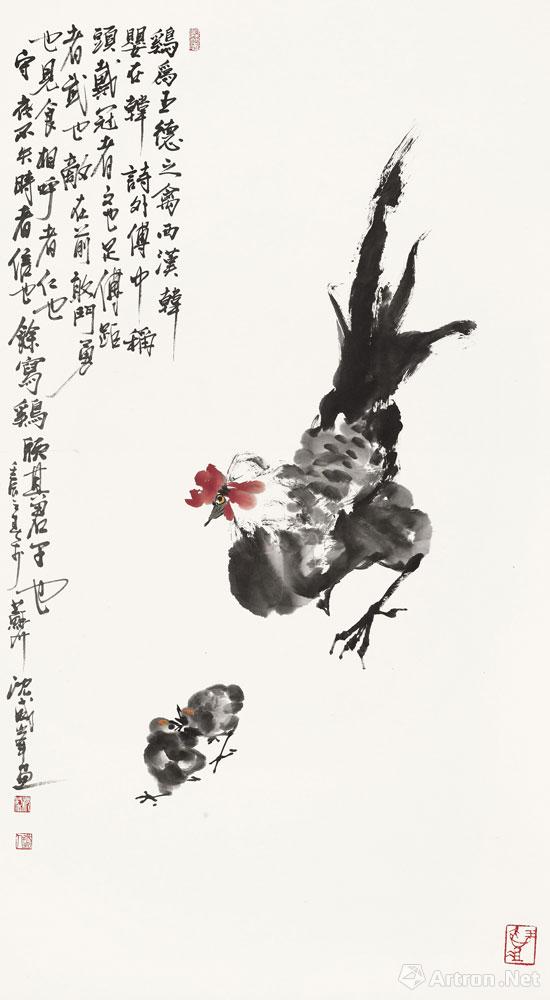 鷄爲五德之禽西漢韓
嬰在韓詩外傳中稱
頭戴冠者文也足傅距
者武也敵在前敢鬥勇
也見食相呼者仁也
守夜不失時者信也餘寫鷄頌其君子也
壬辰之春於蘇州
畫
雅昌艺术网
Artron.Net